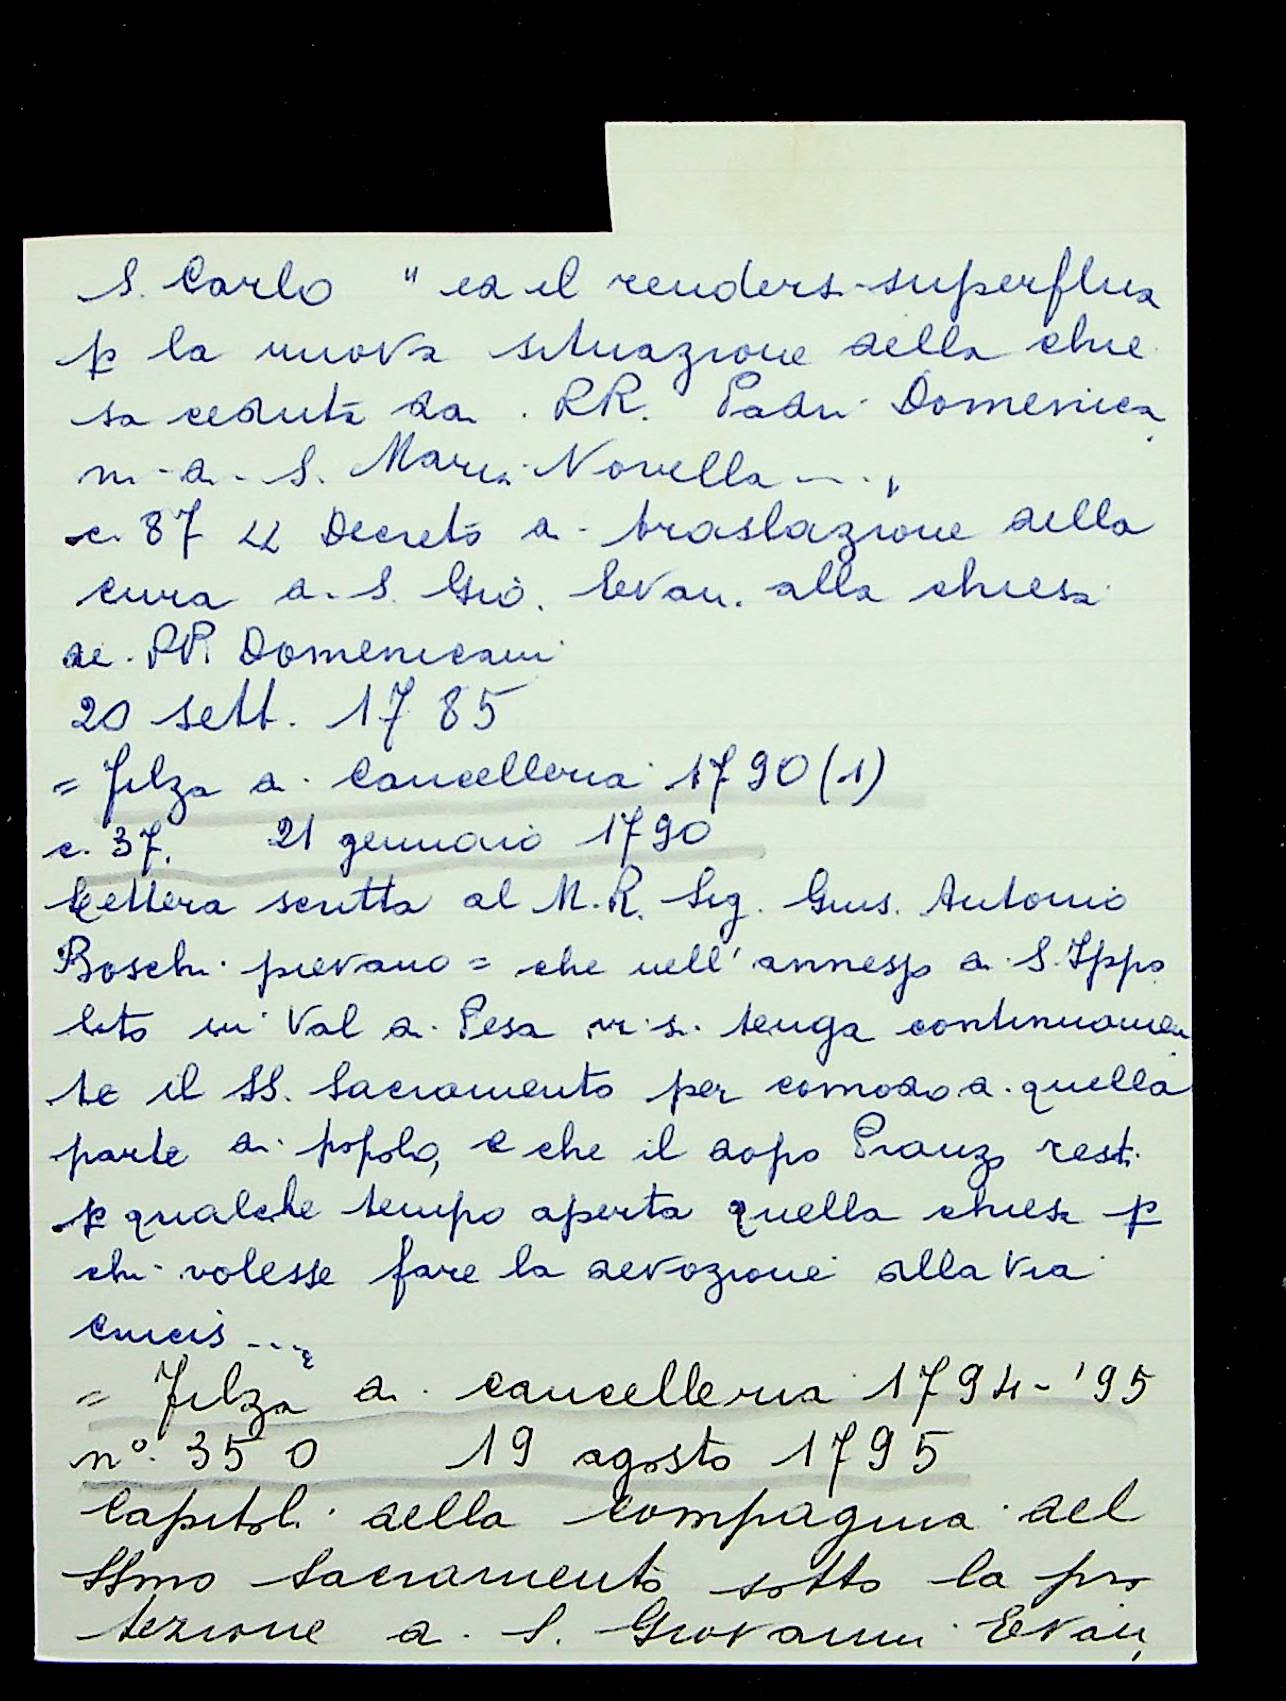 S. Carlo " ed il rendersi superflua
p la nuova situazione della chie
sa ceduta dai RR. Padri Domenica
ni di S. Maria Novella ....,
c. 87 Decreto di traslazione della
cura di S. Gio. Evan. alla chiesa
de. PP. Domenicani
20 sett. 1785
= Filza di Cancelleria 1790 (1)
c. 37. 21 gennaio 1790
Lettera scritta al M.R. Sig. Gius. Antonio
Boschi pievano = che nell'annesso di S. Ippo
lito in Val di Pesa vi si tenga continuamen
te il SS. Sacramento per comodo di quella
parte di popolo, e che il dopo Pranzo resti
p qualche tempo aperta quella chiesa p
chi volesse fare la devozione alla Via
Crucis ....
= Filza di cancelleria 1794-'95
n°. 350 19 agosto 1795
Capitoli della Compagnia del
SSmo Sacramento sotto la pro
tezione di S. Giovanni Evan,